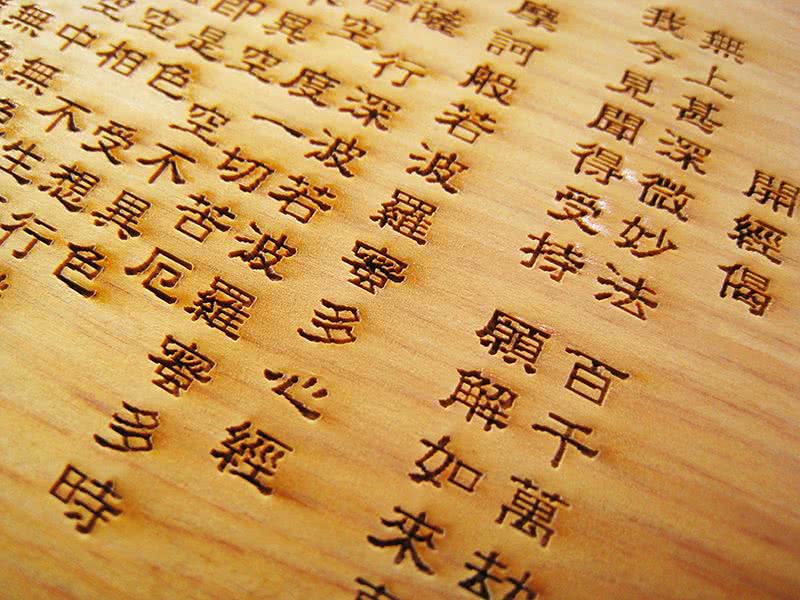 開經偈
無上甚深微妙法 百千萬劫
我今見聞得受持 願解如來
摩訶般若波羅蜜多心經
薩行深般若波羅蜜多時
空度一切苦厄
異空 空不異色
即是色 受想行
空相 不生
中無